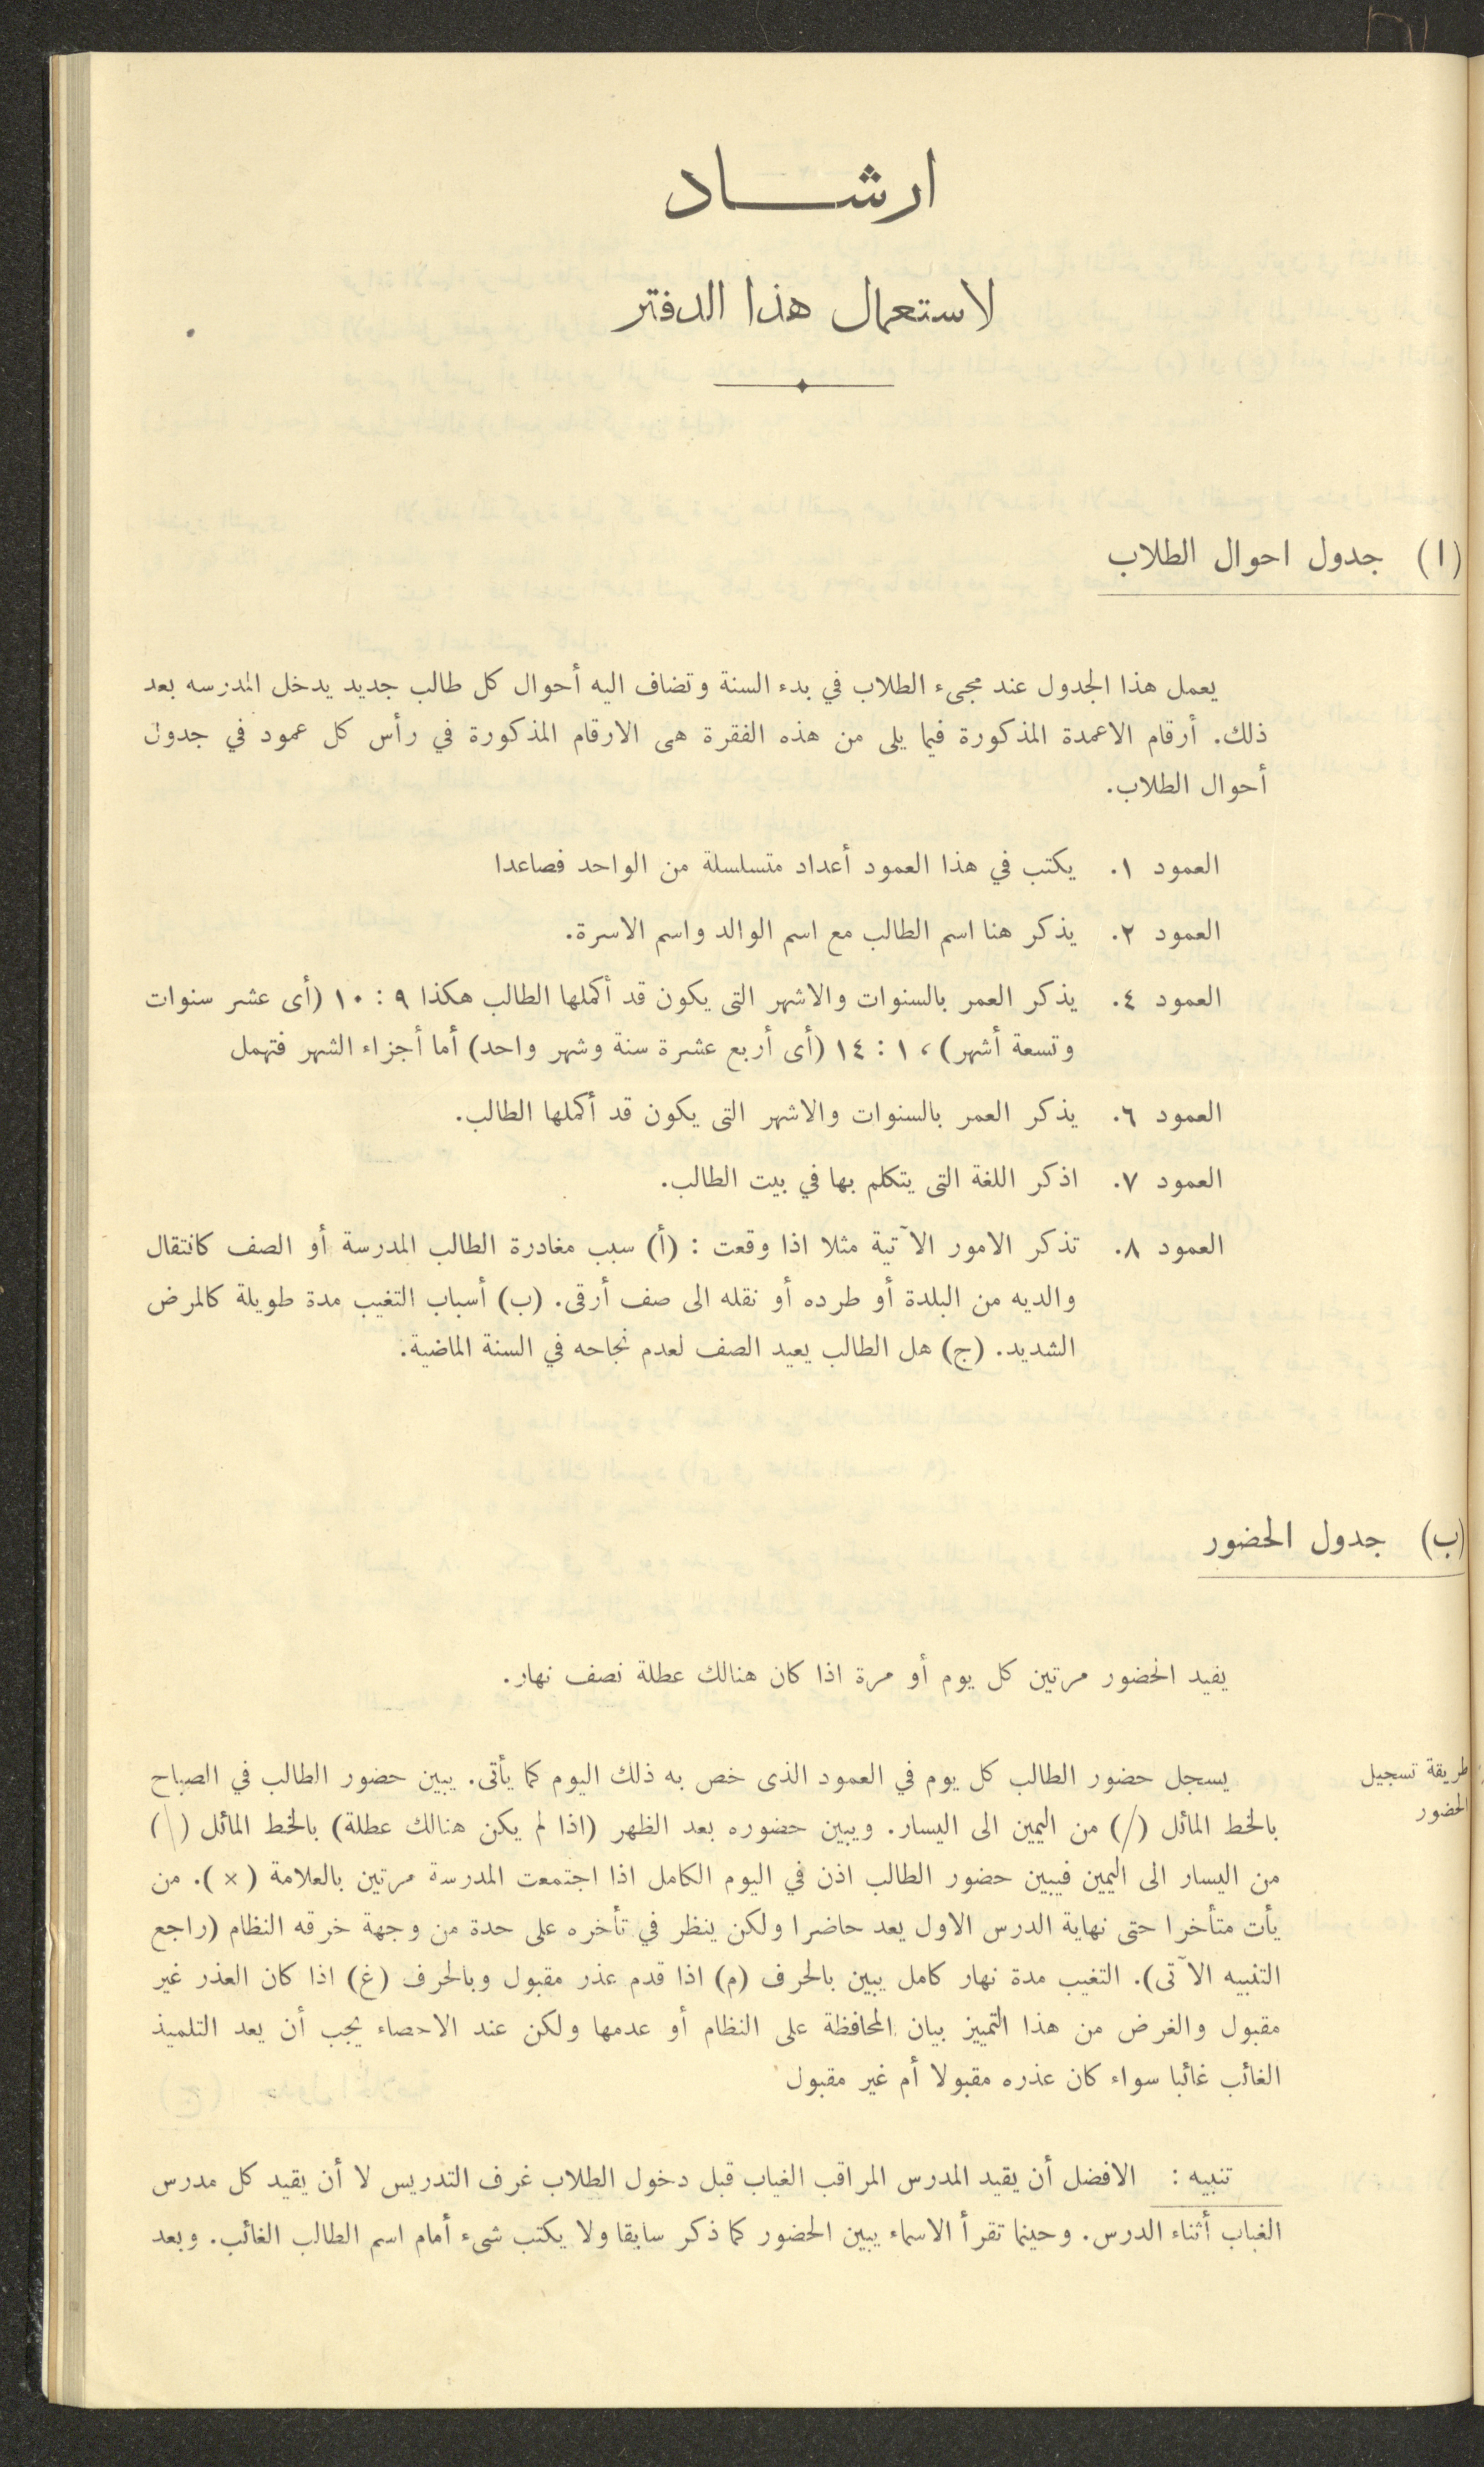 ارشـــاد
لاستعمال هذا الدفتر
(ا) جدول احوال الطلاب
يعمل هذا الجدول عند مجىء الطلاب في بدء السنة وتضاف اليه أحوال كل طالب جديد يدخل المدرسه بعد
ذلك. أرقام الاعمدة المذكورة فيما يلى من هذه الفقرة هى الارقام المذكورة في رأس كل عمود في جدول
أحوال الطلاب.
العمود ١. يكتب في هذا العمود أعداد متسلسلة من الواحد فصاعدا
العمود ٢. يذكر هنا اسم الطالب مع اسم الوالد واسم الاسرة.
العمود ٤. يذكر العمر بالسنوات والاشهر التى يكون قد أكملها الطالب هكذا ٩ : ١٠ (أى عشر سنوات
وتسعة أشهر)، ١ : ١٤ (أى أربع عشرة سنة وشهر واحد) أما أجزاء الشهر فتهمل
العمود ٦. يذكر العمر بالسنوات والاشهر التى يكون قد أكملها الطالب.
العمود ٧. اذكر اللغة التى يتكلم بها في بيت الطالب.
العمود ٨. تذكر الامور الآتية مثلا اذا وقعت : (أ) سبب مغادرة الطالب المدرسة أو الصف كانتقال
والديه من البلدة أو طرده أو نقله الى صف أرقى. (ب) أسباب التغيب مدة طويلة كالمرض
الشديد. (ج) هل الطالب يعيد الصف لعدم نجاحه في السنة الماضية.
(ب) جدول الحضور
يفيد الحضور مرتين كل يوم أو مرة اذا كان هنالك عطلة نصف نهار.
طريقة تسجيل
الحضور
يسجل حضور الطالب كل يوم في العمود الذى خص به ذلك اليوم كما يأتى. يبين حضور الطالب في الصباح
بالخط المائل (/) من اليمين الى اليسار. ويبين حضوره بعد الظهر (اذا لم يكن هنالك عطلة) بالخط المائل (\)
من اليسار الى اليمين فيبين حضور الطالب اذن في اليوم الكامل اذا اجتمعت المدرسة مرتين بالعلامة (×). من
يأت متأخرا حتى نهاية الدرس الاول يعد حاضرا ولكن ينظر في تأخره على حدة من وجهة خرقه النظام (راجع
التنبيه الآتى). التغيب مدة نهار كامل يبين بالحرف (م) اذا قدم عذر مقبول وبالحرف (غ) اذا كان العذر غير
مقبول والغرض من هذا التمييز بيان المحافظة على النظام أو عدمها ولكن عند الاحصاء يجب أن يعد التلميذ
الغائب غائبا سواء كان عذره مقبولا أم غير مقبول
تنبيه : الافضل أن يقيد المدرس المراقب الغياب قبل دخول الطلاب غرف التدريس لا أن يقيد كل مدرس
الغياب أثناء الدرس. وحينما تقرأ الاسماء يبين الحضور كما ذكر سابقا ولا يكتب شىء أمام اسم الطالب الغائب. وبعد